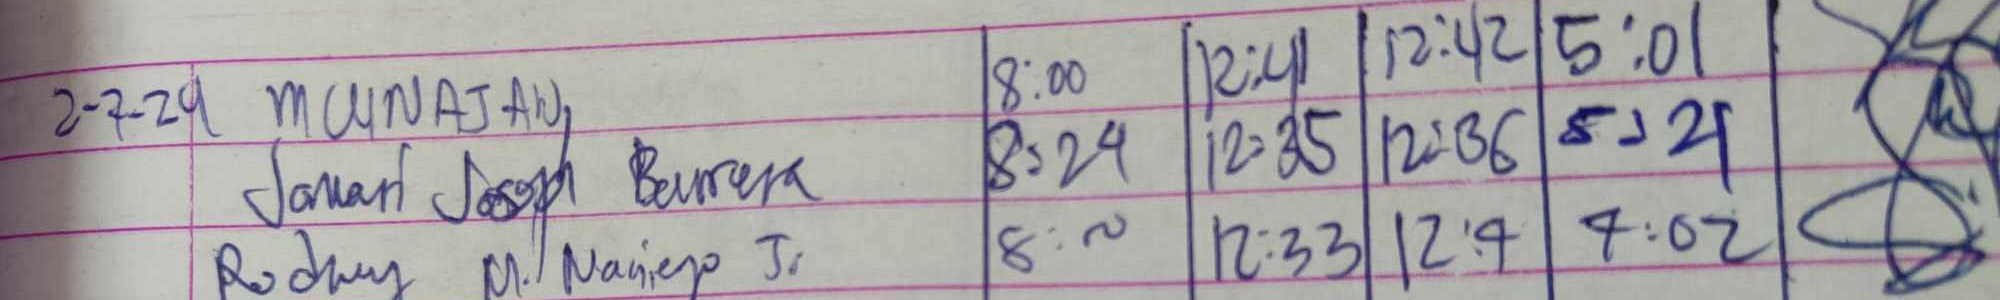 2-7-24 MUNAJAN, 8:00 12:41 12:42 5:01
Joseph Barrera 8:24 12:35 12:36 5:21
Rodney M. J. 8: 12:33 12:4 4:02